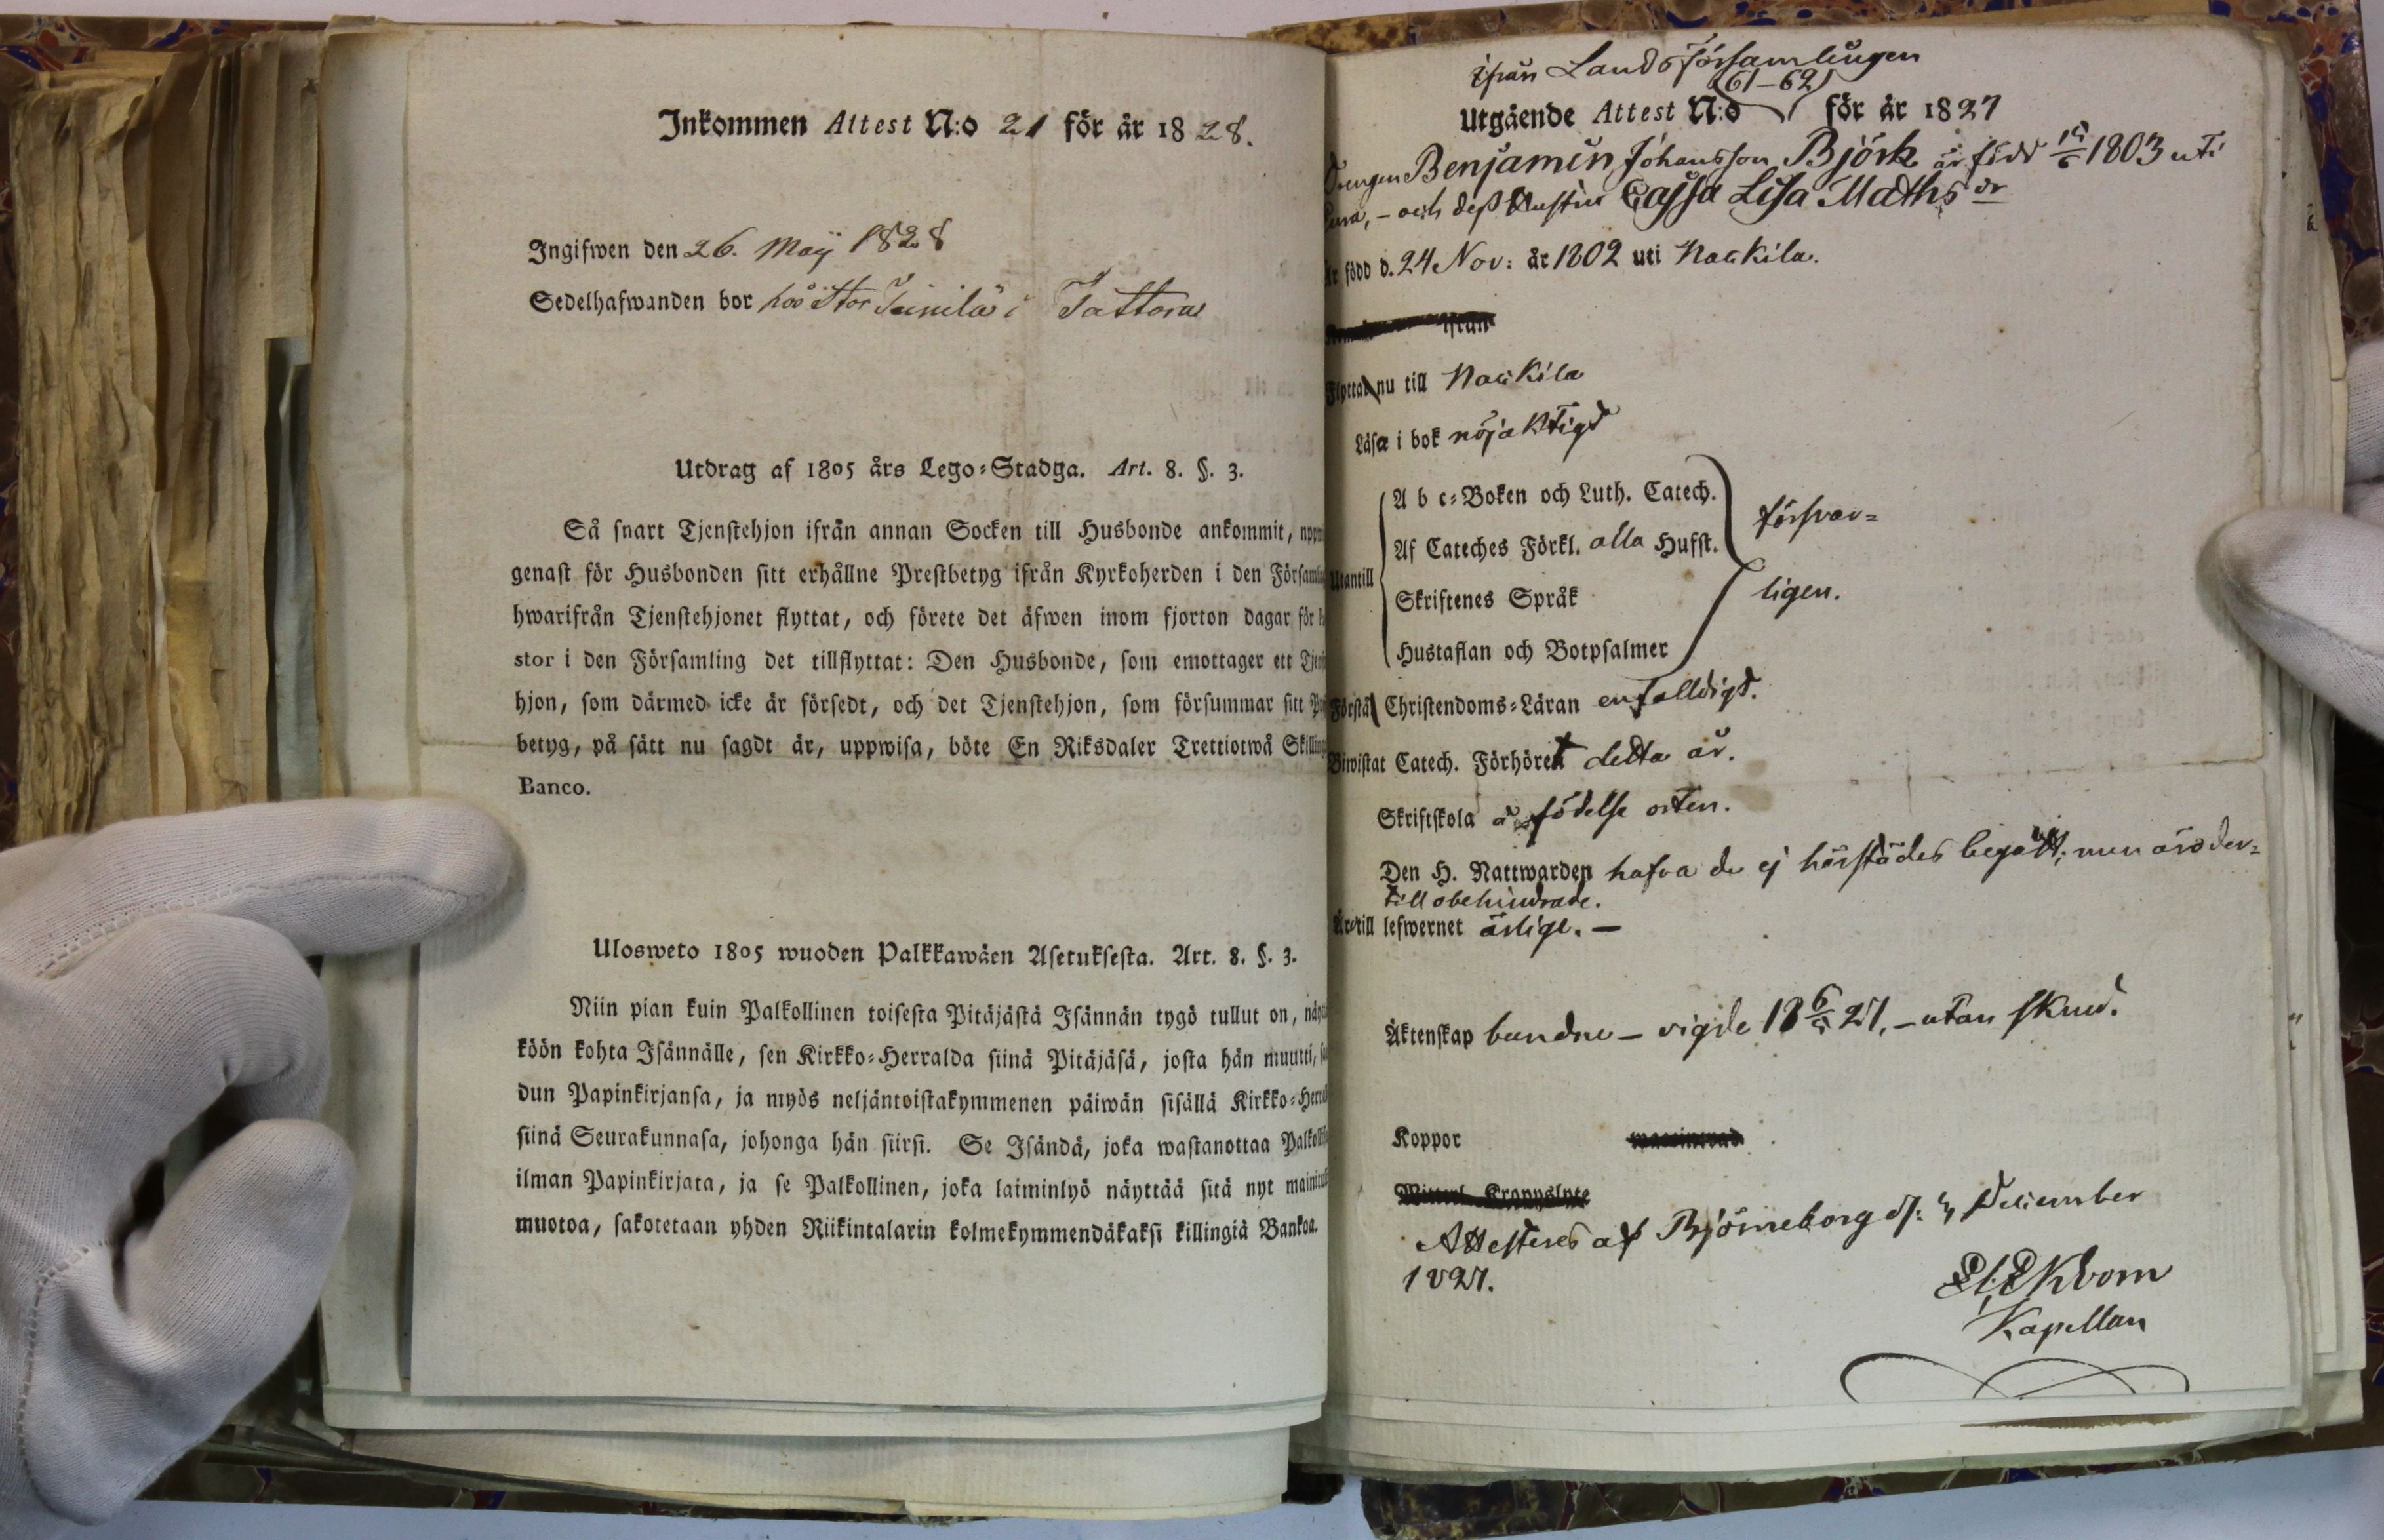 Inkommen Attest N:o 21 för år 1828.
Ingifwen den 26. Maij 1828
Sedelhafwanden bor hos Stor Junila i Tattara
Utdrag af 1805 års Lego-Stadga. Art. 8. §. 3.
Så snart Tjenstehjon ifrån annan Socken till Husbonde ankommit,
genast för Husbonden sitt erhållne Prestbetyg ifrån Kyrkoherden i den
hwarifrån Tjenstehjonet flyttat, och förete det äfwen inom fjorton dagar för
stor i den Församling det tillflyttat: Den Husbonde, som emottager ett
hjon, som därmed icke är försedt, och det Tjenstehjon, som försummar sitt
betyg, på sätt nu sagdt är, uppwisa, böte En Riksdaler Trettiotwå
Banco.
Ulosweto 1805 wuoden Palkkawäen Asetuksesta. Art. 8. §. 3.
Niin pian kuin Palkollinen toisesta Pitäjästä Isännän tygö tullut on,
köön kohta Isännälle, sen Kirkko-Herralda siinä Pitäjäsä, josta hän muutti,
dun Papinkirjansa, ja myös neljäntoistakymmenen päiwän sisällä
siinä Seurakunnasa, johonga hän siirsi. Se Isändä, joka wastanottaa
ilman Papinkirjata, ja se Palkollinen, joka laiminlyö näyttää sitä nyt
muotoa, sakotetaan yhden Riikintalarin kolmekymmendäkaksi killingiä Bankoa.
ifrån Landsförsamlingen
61-62
Utgående Attest N:o för år 1827
Drengen Benjamin Johansson Björk är född 1803 uti
och dess Hustru Cajsa Lisa Maths dr
är född d. 24 Nov: år 1802 uti Nackila.
ifrån
Flytta nu till Nackila
Läsa i bok nöjaktigt
A b c-Boken och Luth. Catech.
Af Cateches Förkl. alla Hufst.
försvar-
Utantill
Skriftenes Språk
ligen.
Hustaflan och Botpsalmer
Förstå Christendoms-Läran enfalldigt.
Biwistat Catech. Förhöret detta år.
Skriftskola å födelse orten.
Den H. Nattwarden hafva de ej härstädes begått; men äro der-
till obehindrade.
Äro till lefwernet ärlige. —
Äktenskap bundne — vigde 18 6/5 27, — utan skud.
Koppor
Attesteras af Björneborg d: 4 December
1827.
Ekbom
Kapellan